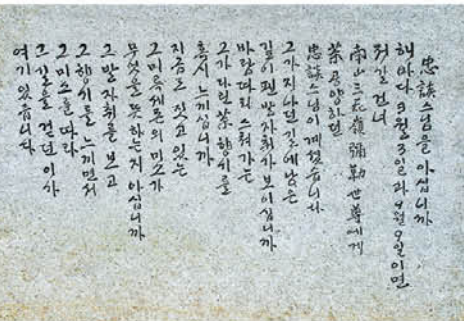 忠談스님을 아십니까
해마다 3월 3일과 9월 9일이면
저길 건너
南山三花嶺 彌勒世尊에게
茶공양하던
忠談스님이 계셨습니다
그가 지나던 길에 남은
깊이 팬 발자취가 보이십니까
바람따라 스쳐가는
그가 다린 茶향기를
혹시 느끼십니까
지금도 짓고 있는
그 미륵세존의 미소가
무엇을 뜻하는지 아십니까
그 발자취를 보고
그 향기를 느끼면서
그 미소를 따라
그 길을 걷던 이가
여기 있습니다